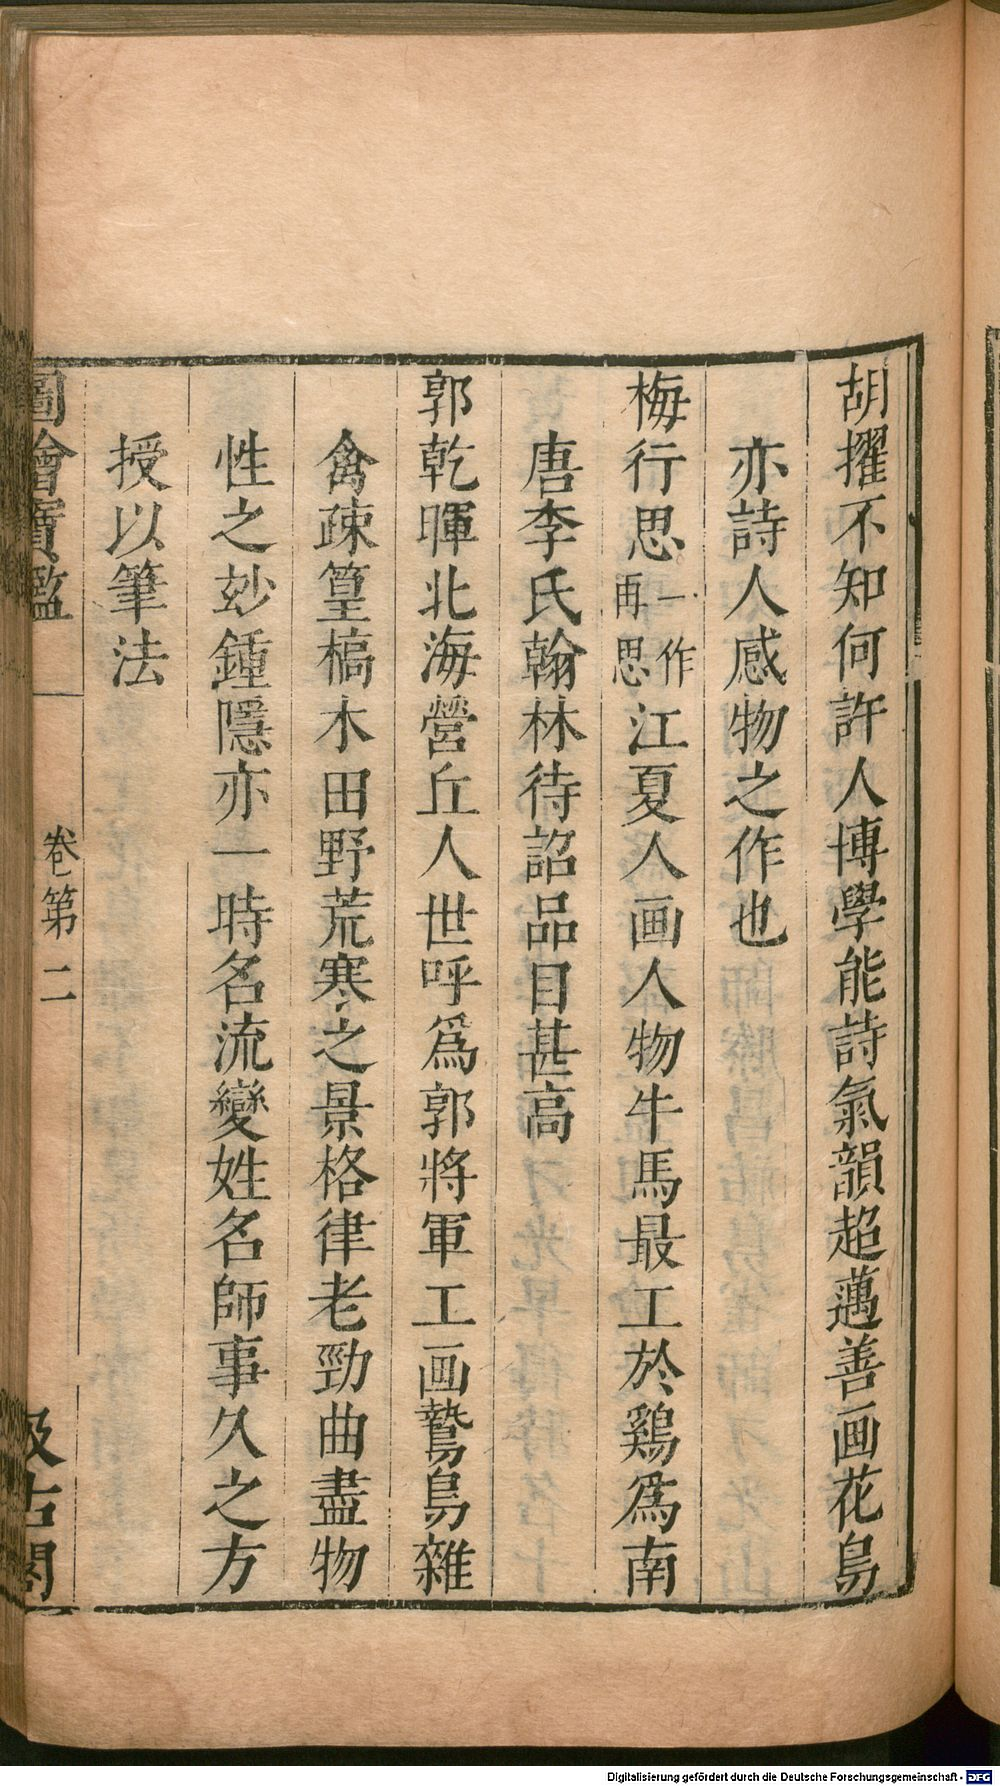 胡擢不知何許人博學能詩氣韻超邁善画花鳥
亦詩人感物之作也
梅行思一作再思江夏人画人物牛馬最工於鷄爲南
唐李氏翰林待詔品目甚高
郭乾暉北海營丘人世呼爲郭將軍工画鷙鳥雜
禽疎篁槁木田野荒寒之景格律老勁曲盡物
性之妙鍾隱亦一時名流變姓名師事久之方
授以筆法
圖繪寶鑑
卷第二
汲古閣
Digitalisierung gefördert durch die Deutsche Forschungsgemeinschaft - DFG